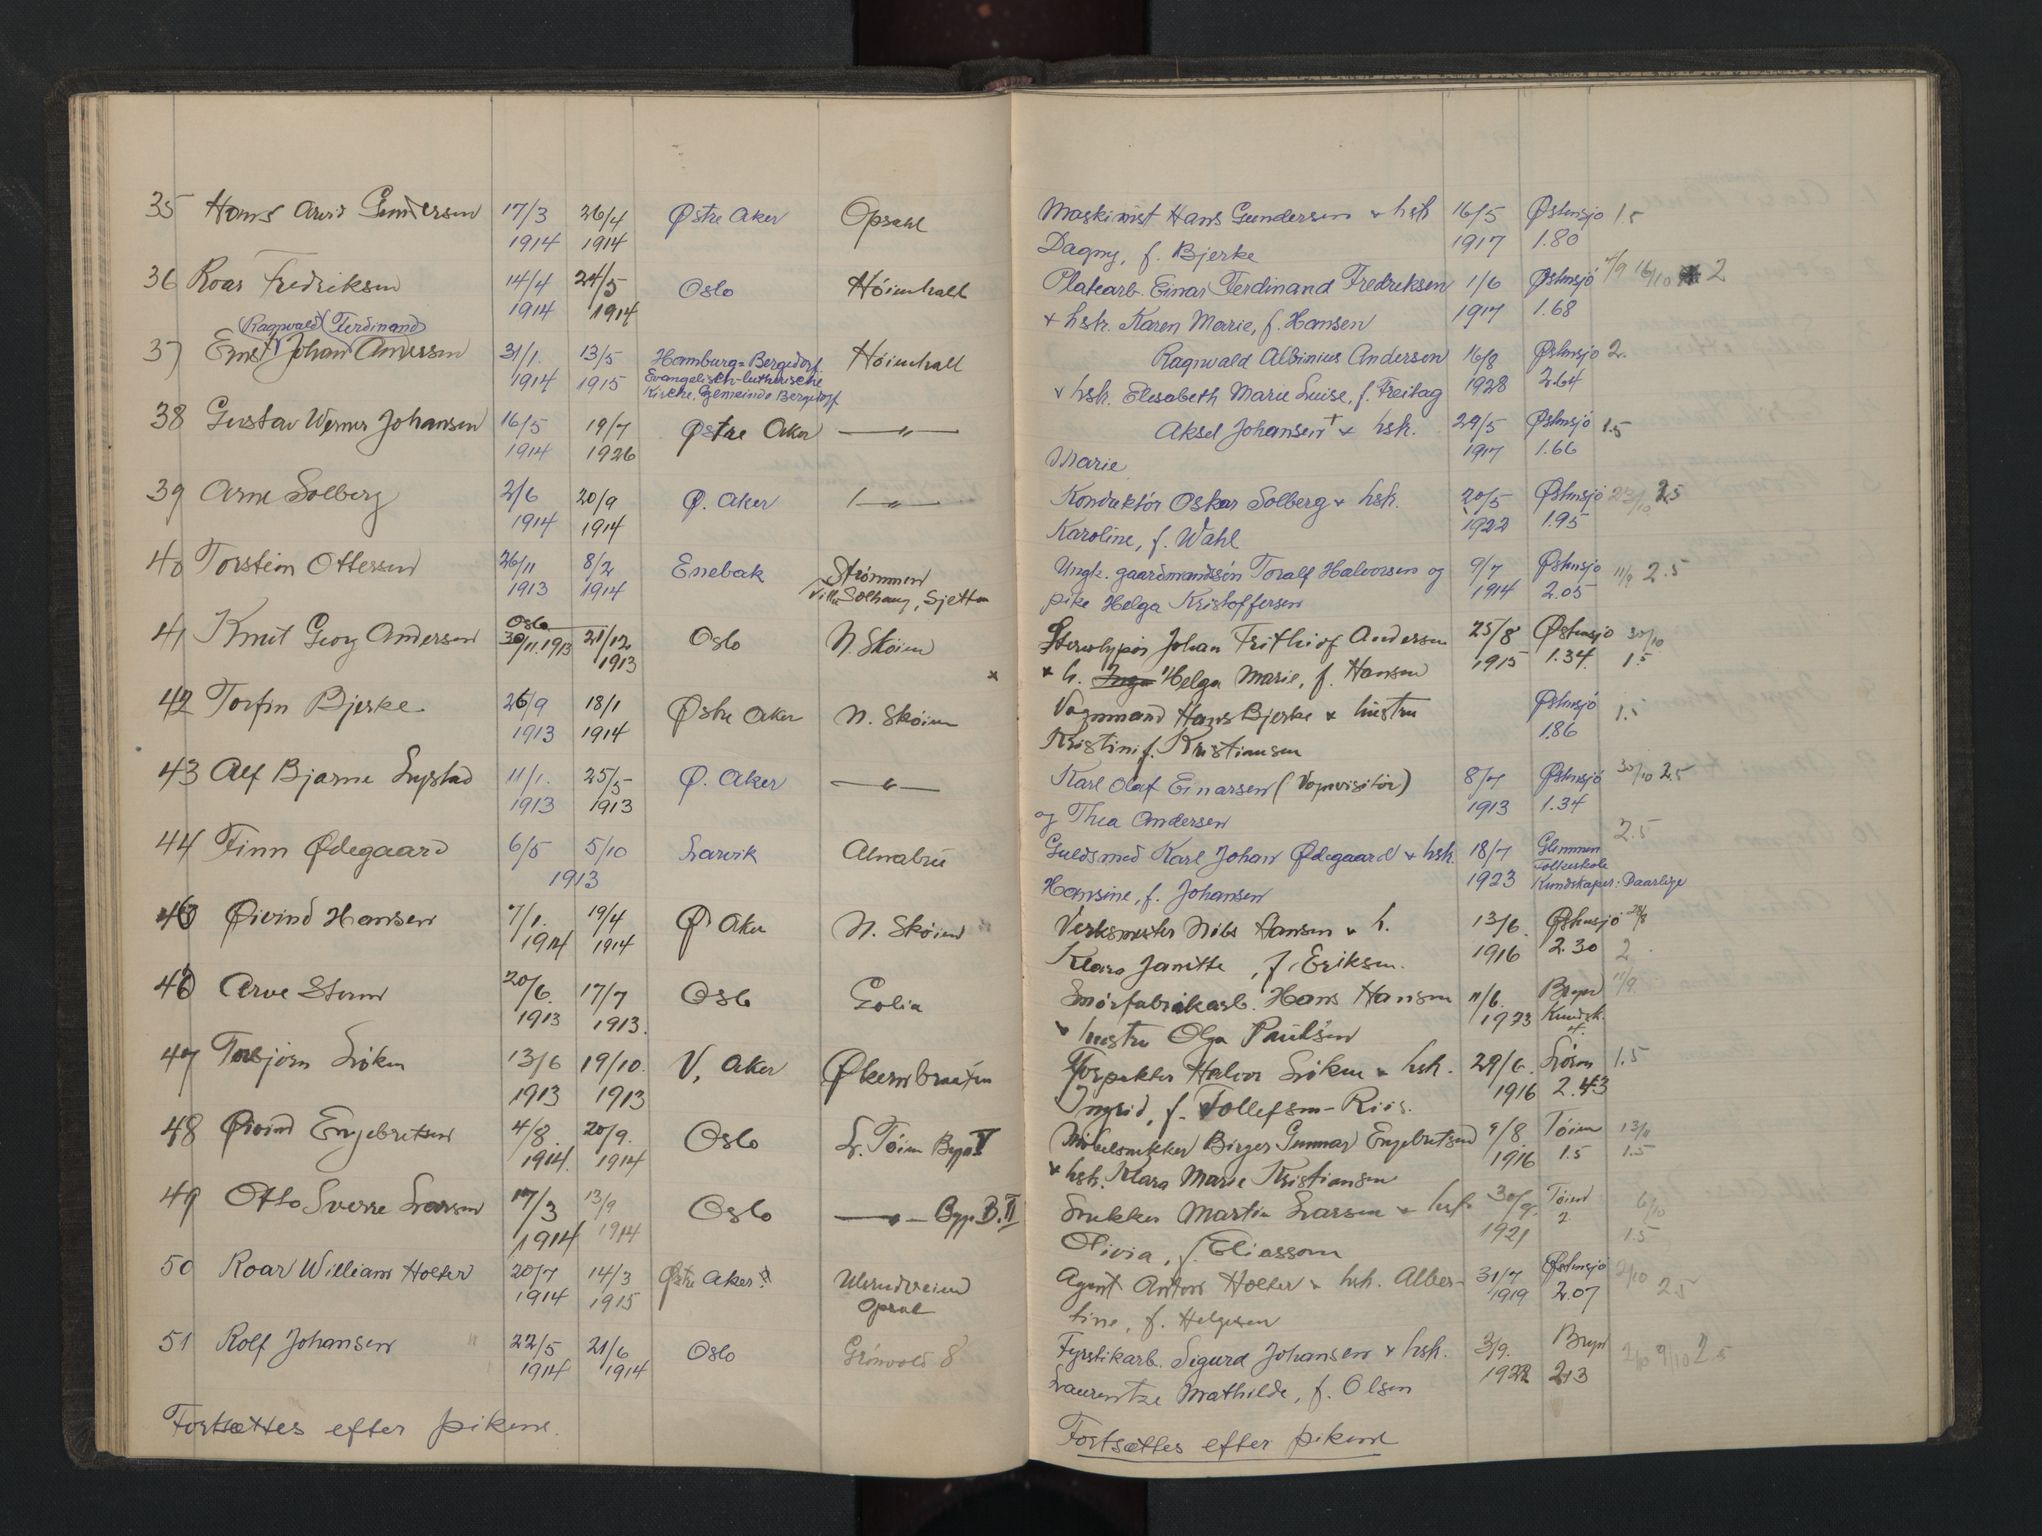 35 Hans Arvid Gundersen 17/3 26/4 Østre Aker Opsahl Maskinist Hans Gundersen & hstr 16/5 Østensjø 1.5
1914 1914 Dagny, f. Bjerke 1917 1.80
36 Roar Fredriksen 14/4 24/5 Oslo Høienhall Platearb. Einar Ferdinand Fredriksen 1/6 Østensjø 7/9 16/10 2
1914 1914 & hstr. Karen Marie, f. Hansen 1917 1.68
Ragnvald Ferdinand
37 Ernst Johan Andersen 31/1. 13/5 Hamburg=Bergedorf. Høienhall Ragnvald Albinius Andersen 16/8 Østensjø 2.
1914 1915 Evangelisch-lutherische & hstr. Elisabeth Marie Luise, f. Freitag 1928 2.64
Kirche. Gemeinde Bergedorf
38 Gustav Werner Johansen 16/5 19/7 Østre Aker —„— Aksel Johansen † & hstr. 29/5 Østensjø 1.5
1914 1926 Marie 1917 1.66
39 Arne Solberg 2/6 20/9 Ø. Aker —„— Konduktør Oskar Solberg & hstr. 20/5 Østensjø 23/10 2.5
1914 1914 Karoline, f. Wahl 1922 1.95
40 Torstein Ottersen 26/11 8/2 Enebak Strømmen Ungk. gaardmandssøn Toralf Halvorsen og 9/7 Østensjø 11/9 2.5
1913 1914 Villa Solhaug, Sjetten pike Helga Kristoffersen 1914 2.05
Oslo
41 Knut Georg Andersen 30/11.1913 21/12 Oslo N. Skøien Stereotypør Johan Frithiof Andersen 25/8 Østensjø 30/10
1913 & h. Inga Helga Marie, f. Hansen 1915 1.34. 1.5
42 Torfin Bjerke 26/9 18/1 Østre Aker N. Skøien Vognmand Hans Bjerke & hustru Østensjø 1.5
1913 1914 Kristine f. Kristiansen 1.86
43 Alf Bjarne Lystad 11/1. 25/5 Ø. Aker —„— Karl Olaf Einarsen (Vognvisitør) 8/7 Østensjø 30/10 2.5
1913 1913 og Thea Andersen 1913 1.34
44 Finn Ødegaard 6/5 5/10 Larvik Alnabru Guldsmed Karl Johan Ødegaard & hstr. 18/7 Glemmen 2.5
1913 Hansine, f. Johansen 1923 Folkeskole
Kundskaper: Daarlige
45 Øivind Hansen 7/1. 19/4 Ø Aker N. Skøien Verksmester Nils Hansen & h. 13/6. Østensjø 28/8
1914 1914 Klara Janette, f. Eriksen. 1916 2.30 2
46 Arve Storm 20/6. 17/7 Oslo Golia Smørfabrikarb. Hans Hansen 11/6. Bryn 11/9.
1913 1913. & hustru Olga Paulsen 1923 Kundsk.
47 Torbjørn Løken 13/6 19/10. V. Aker Økernbraaten Inspektør Halvor Løken & hstr. 29/6. Løren 1.5
1913 1913 Ingrid, f. Tollefsen-Riis. 1916 2.43
48 Øivind Engebretsen 4/8. 20/9. Oslo L. Tøien Bygn V Møbelsnekker Birger Gunnar Engebretsen 9/8. Tøien 13/11
1914. 1914 & hstr. Klara Marie Kristiansen 1916 1.5 1.5
49 Otto Sverre Larsen 17/3 13/9 Oslo —„— Bygn B. II Snekker Martin Larsen & hstr. 30/9. Tøien 6/10
1914 1914 Olivia, f. Eliassen 1921 2 1.5
50 Roar William Holter 20/7 14/3 Østre Aker Ulsrudveien Agent Anton Holter & hstr. Alber- 31/7 Østensjø 2/10
1914 1915 Opsal tine, f. Helgesen 1919 2.07 2.5
51 Rolf Johansen 22/5 21/6 Oslo Grønvold 8 Fyrstikarb. Sigurd Johansen & hstr. 3/9. Bryn 2/10 9/10 2.5
1914 1914 Laurentze Mathilde, f. Olsen 1922 2.13
Fortsættes efter pikene.
Fortsættes efter pikene